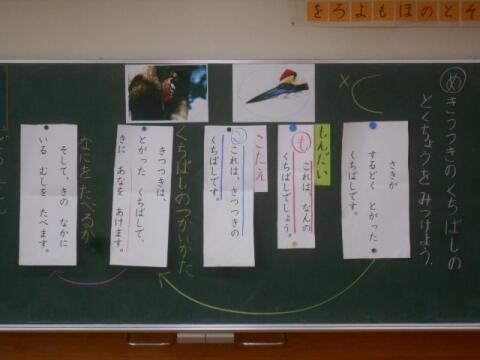 をろよもほのとそ
め きつつきのくちばしの
とくちょうをみつけよう。
さきが
するどく とがった
くちばしです。
もんだい
も これは、なんの
くちばしでしょう。
こたえ
こ これは、きつつきの
くちばしです。
くちばしのつかいかた
きつつきは、
とがった くちばしで、
きに あなを あけます。
なにをたべるか
そして、きの なかに
いる むしを たべます。